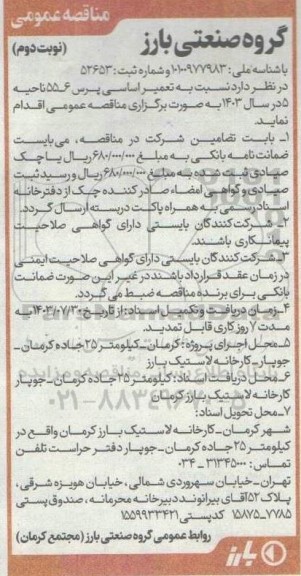 مناقصه عمومی
گروه صنعتی بارز
(نوبت دوم)
باشناسه ملی: ۱۰۱۰۰۹۷۷۹۸۳ و شماره ثبت: ۵۲۶۵۳
در نظر دارد نسبت به تعمیر اساسی پرس ۶-۵۵ ناحیه
۵ در سال ۱۴۰۳ به صورت برگزاری مناقصه عمومی اقدام
نماید.
۱- بابت تضامین شرکت در مناقصه، می‌بایست
ضمانت نامه بانکی به مبلغ ۶۸۰/۰۰۰/۰۰۰ ریال یا چک
صیادی ثبت شده به مبلغ ۶۸۰/۰۰۰/۰۰۰ ریال و رسید ثبت
صیادی و گواهی امضاء صادر کننده چک از دفترخانه
اسناد رسمی به همراه پاکت دربسته ارسال گردد.
۲- شرکت کنندگان بایستی دارای گواهی صلاحیت
پیمانکاری باشند.
۳- شرکت کنندگان بایستی دارای گواهی صلاحیت ایمنی
در زمان عقد قرارداد باشند در غیر این صورت ضمانت
بانکی برای برنده مناقصه ضبط می گردد.
۴- زمان دریافت و تکمیل اسناد: از تاریخ: ۱۴۰۳/۰۷/۳ به
مدت ۷ روز کاری قابل تمدید.
۵- محل اجرای پروژه: کرمان-کیلومتر ۲۵ جاده کرمان -
جوپار-کارخانه لاستیک بارز
۶- محل دریافت اسناد: کیلومتر ۲۵ جاده کرمان-جوپار
کارخانه لاستیک بارز کرمان
۷- محل تحویل اسناد:
شهر کرمان - کارخانه لاستیک بارز کرمان واقع در
کیلومتر ۲۵ جاده کرمان-جوپار دفتر حراست تلفن
تماس: ۳۱۳۴۵۰۰۰ - ۰۳۴
تهران-خیابان سهروردی شمالی، خیابان هویزه شرقی،
پلاک ۵۲ آقای بیرانوند دبیرخانه محرمانه، صندوق پستی
۷۷۸۵-۱۵۸۷۵ کدپستی ۱۵۵۹۹۳۳۴۲۱
روابط عمومی گروه صنعتی بارز (مجتمع کرمان)
بارز
۰۲۱-۸۸۳۴۹۶۷۰